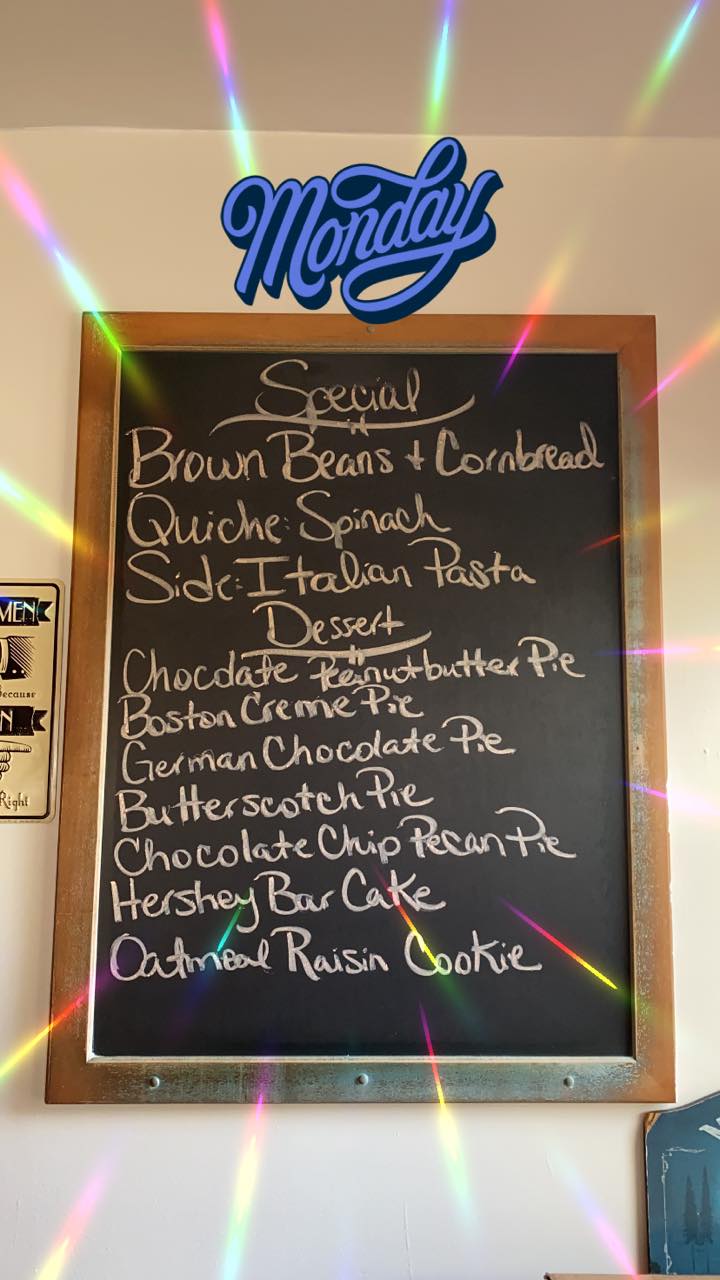 Monday
Special
Brown Beans + Cornbread
Quiche: Spinach
Side: Italian Pasta
Dessert
Chocolate Peanutbutter Pie
Boston Creme Pie
German Chocolate Pie
Butterscotch Pie
Chocolate Chip Pecan Pie
Hershey Bar Cake
Oatmeal Raisin Cookie
MEN
Because
N
Right